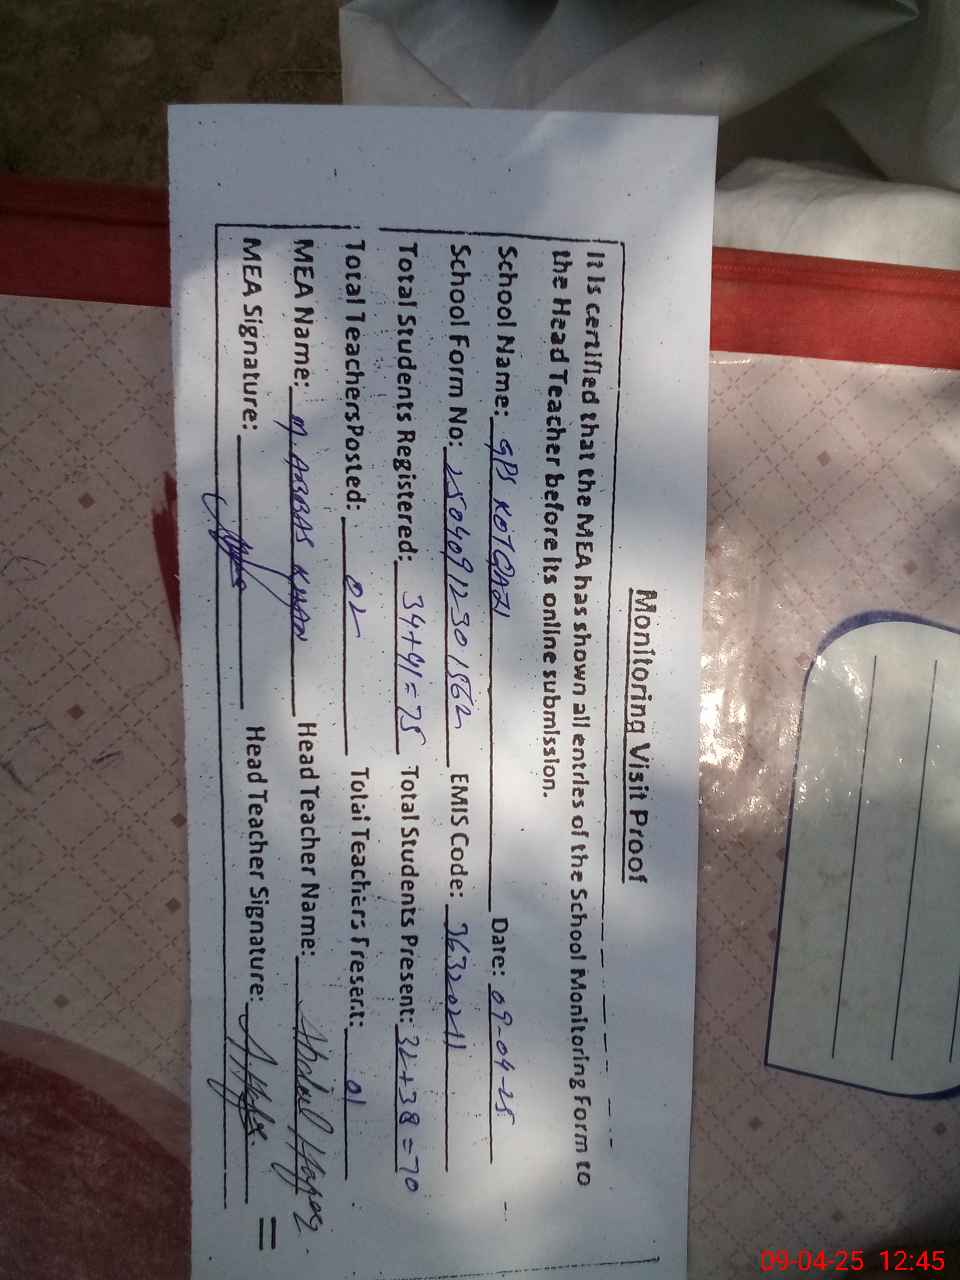 Monitoring Visit Proof
It is certified that the MEA has shown all entries of the School Monitoring Form to
the Head Teacher before its online submission.
School Name: GPS KOT QAZI Date: 09-04-25
School Form No: 25040912301562 EMIS Code: 36320211
Total Students Registered: 34+41=75 Total Students Present: 32+38=70
Total Teachers Posted: 02 Total Teachers Present: 01
MEA Name: M. ABBAS KHAN Head Teacher Name: Abdul
MEA Signature: Head Teacher Signature:
09-04-25 12:45